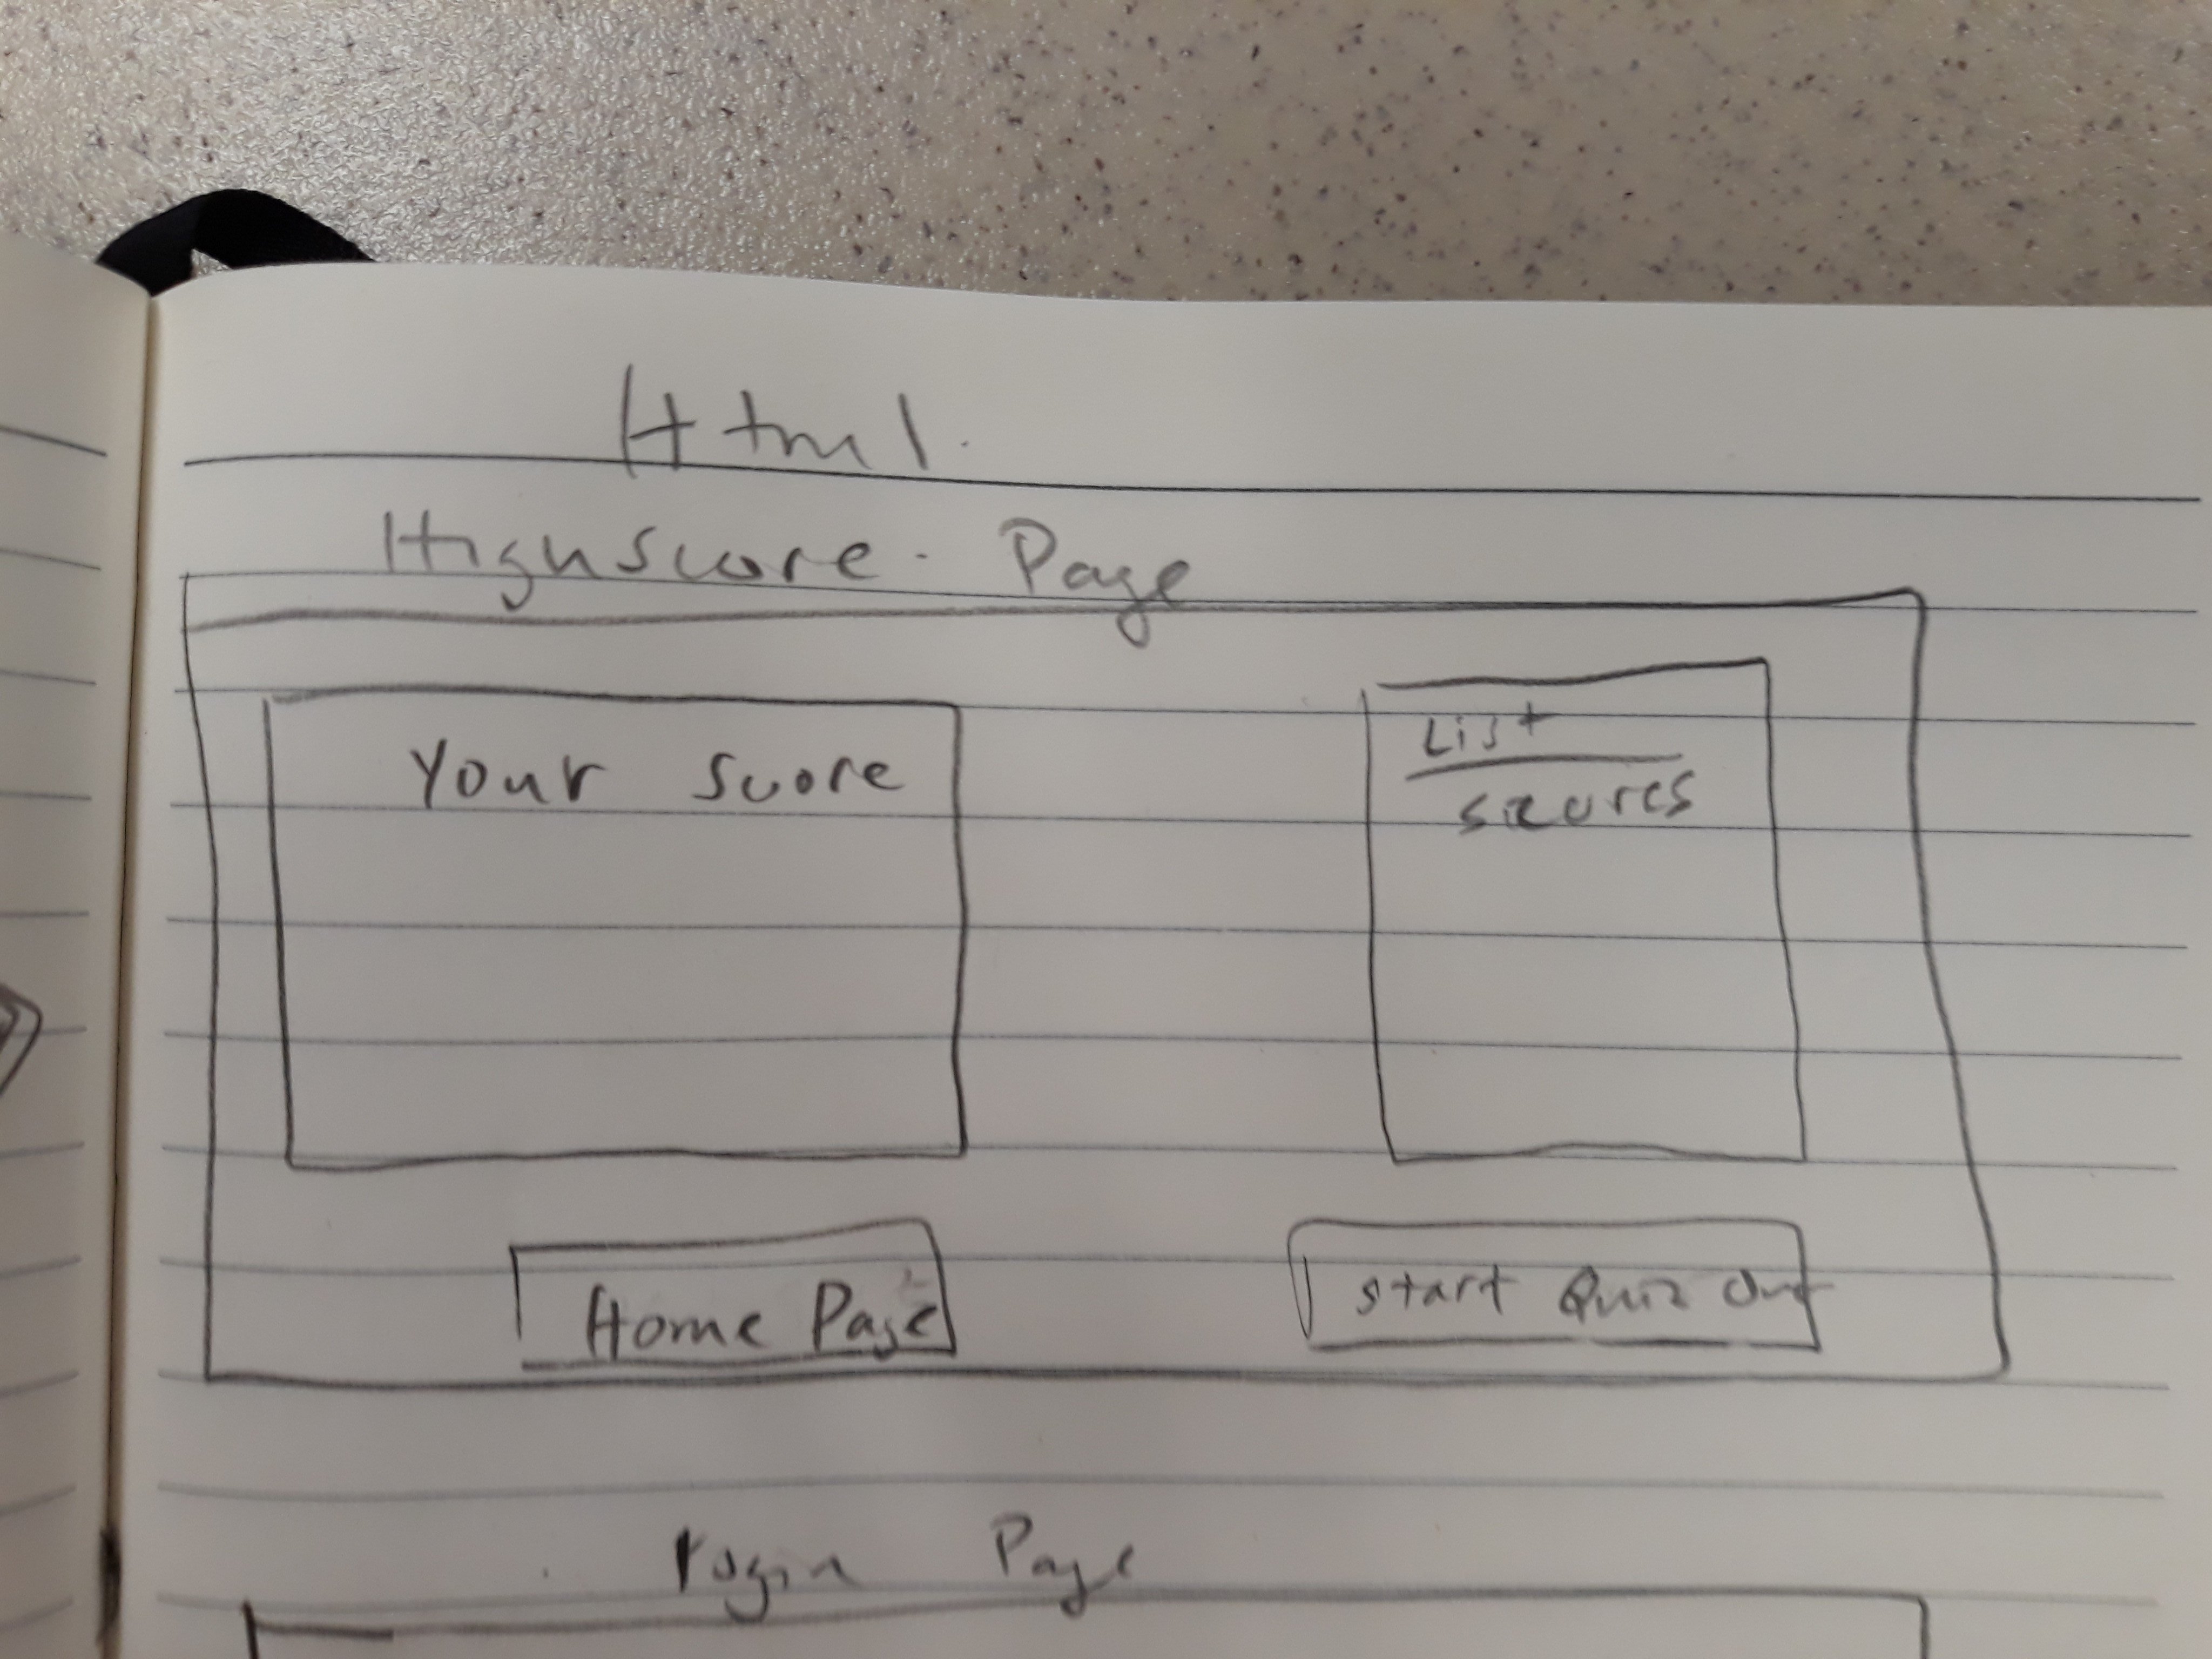 Html.
Highscore. Page
Your Score
List
scores
Home Page
Start Quiz
Login Page